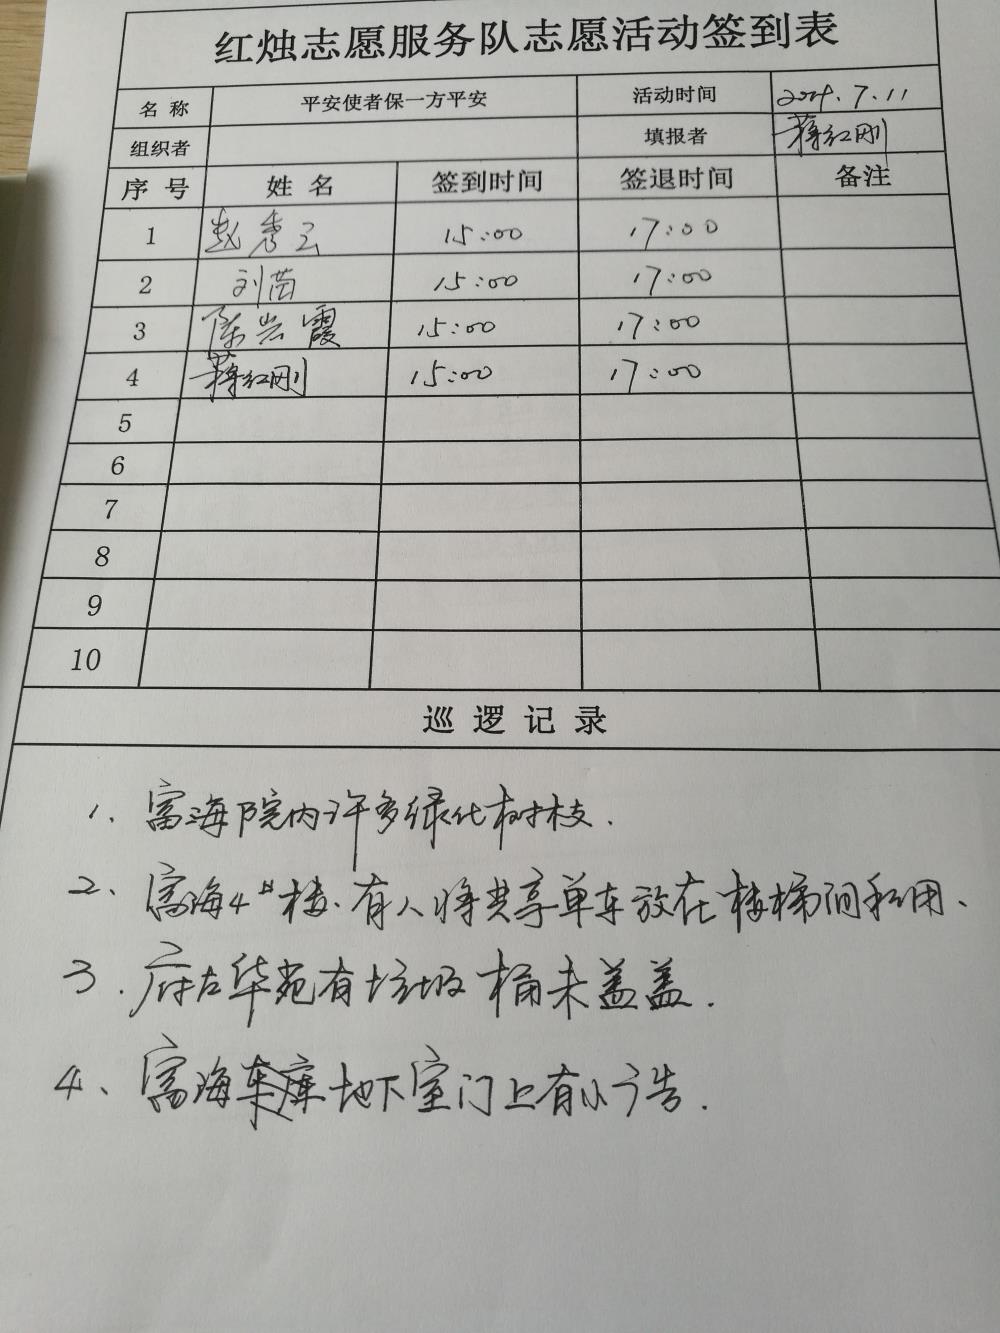 红烛志愿服务队志愿活动签到表
名 称 平安使者保一方平安 活动时间 2024.7.11
组织者 填报者 蒋红刚
序 号 姓 名 签到时间 签退时间 备注
1 赵秀云 15:00 17:00
2 刘茵 15:00 17:00
3 陈岩霞 15:00 17:00
4 蒋红刚 15:00 17:00
5
6
7
8
9
10
巡 逻 记 录
1、富海院内许多绿化树枝.
2、富海4#楼、有人将共享单车放在楼梯间私用、
3.府左华苑有垃圾桶未盖盖.
4、富海车库地下室门上有小广告.